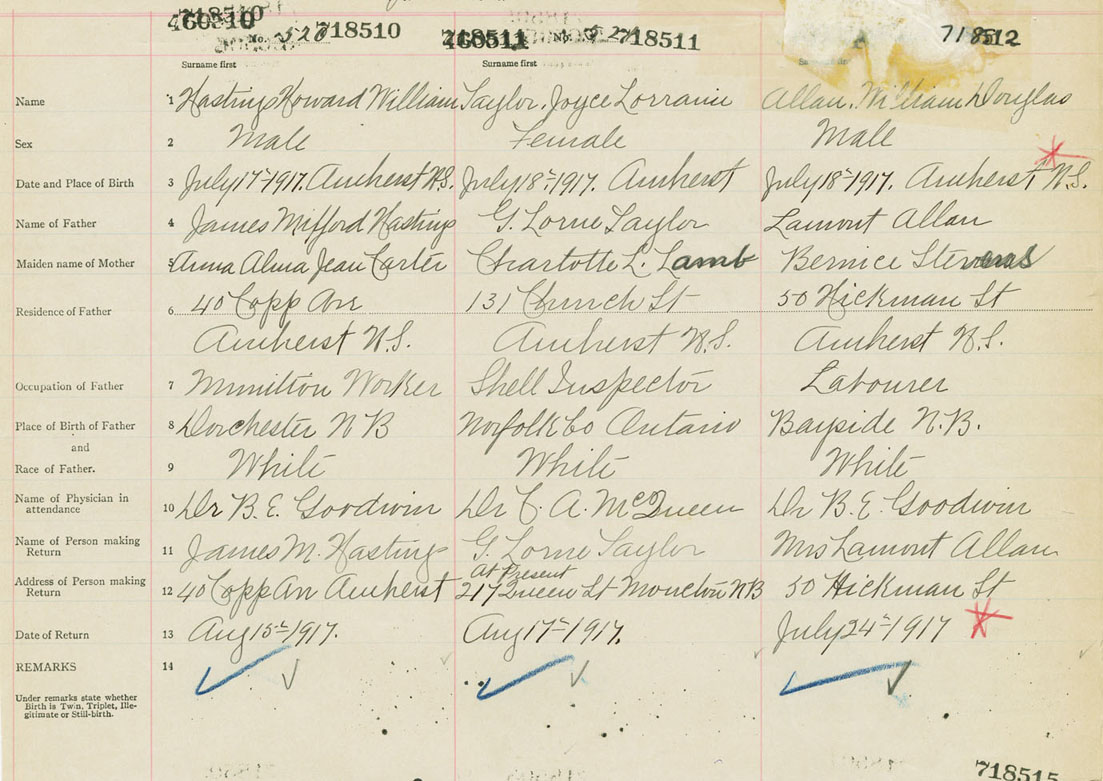 718510 718511 718512
460510 No. 718510 460511 No. 718511
Surname first Surname first
Name 1 Hastings Howard William Taylor, Joyce Lorraine Allan, William Douglas
Sex 2 Male Female Male
Date and Place of Birth 3 July 17th 1917. Amherst N.S. July 18th, 1917. Amherst July 18th 1917. Amherst N.S.
Name of Father 4 James Mifford Hastings G. Lorne Taylor Lamont Allan
Maiden name of Mother 5 Anna Alma Jean Carter Charlotte L. Lamb Bernice Stevens
Residence of Father 6 40 Copp Ave 131 Church St 50 Hickman St
Amherst N.S. Amherst N.S. Amherst N.S.
Occupation of Father 7 Munition Worker Shell Inspector Labourer
Place of Birth of Father 8 Dorchester N B Norfolk Co Ontario Bayside N.B.
and
Race of Father. 9 White White White
Name of Physician in
attendance 10 Dr B. E. Goodwin Dr C. A. McQueen Dr B. E. Goodwin
Name of Person making
Return 11 James M. Hastings G. Lorne Taylor Mrs Lamont Allan
At Present
Address of Person making
Return 12 40 Copp Av Amherst 217 Queen St Moncton NB 50 Hickman St
Date of Return 13 Aug 15th 1917. Aug 17th 1917. July 24th 1917
REMARKS 14
Under remarks state whether
Birth is Twin, Triplet, Ille-
gitimate or Still-birth.
718515